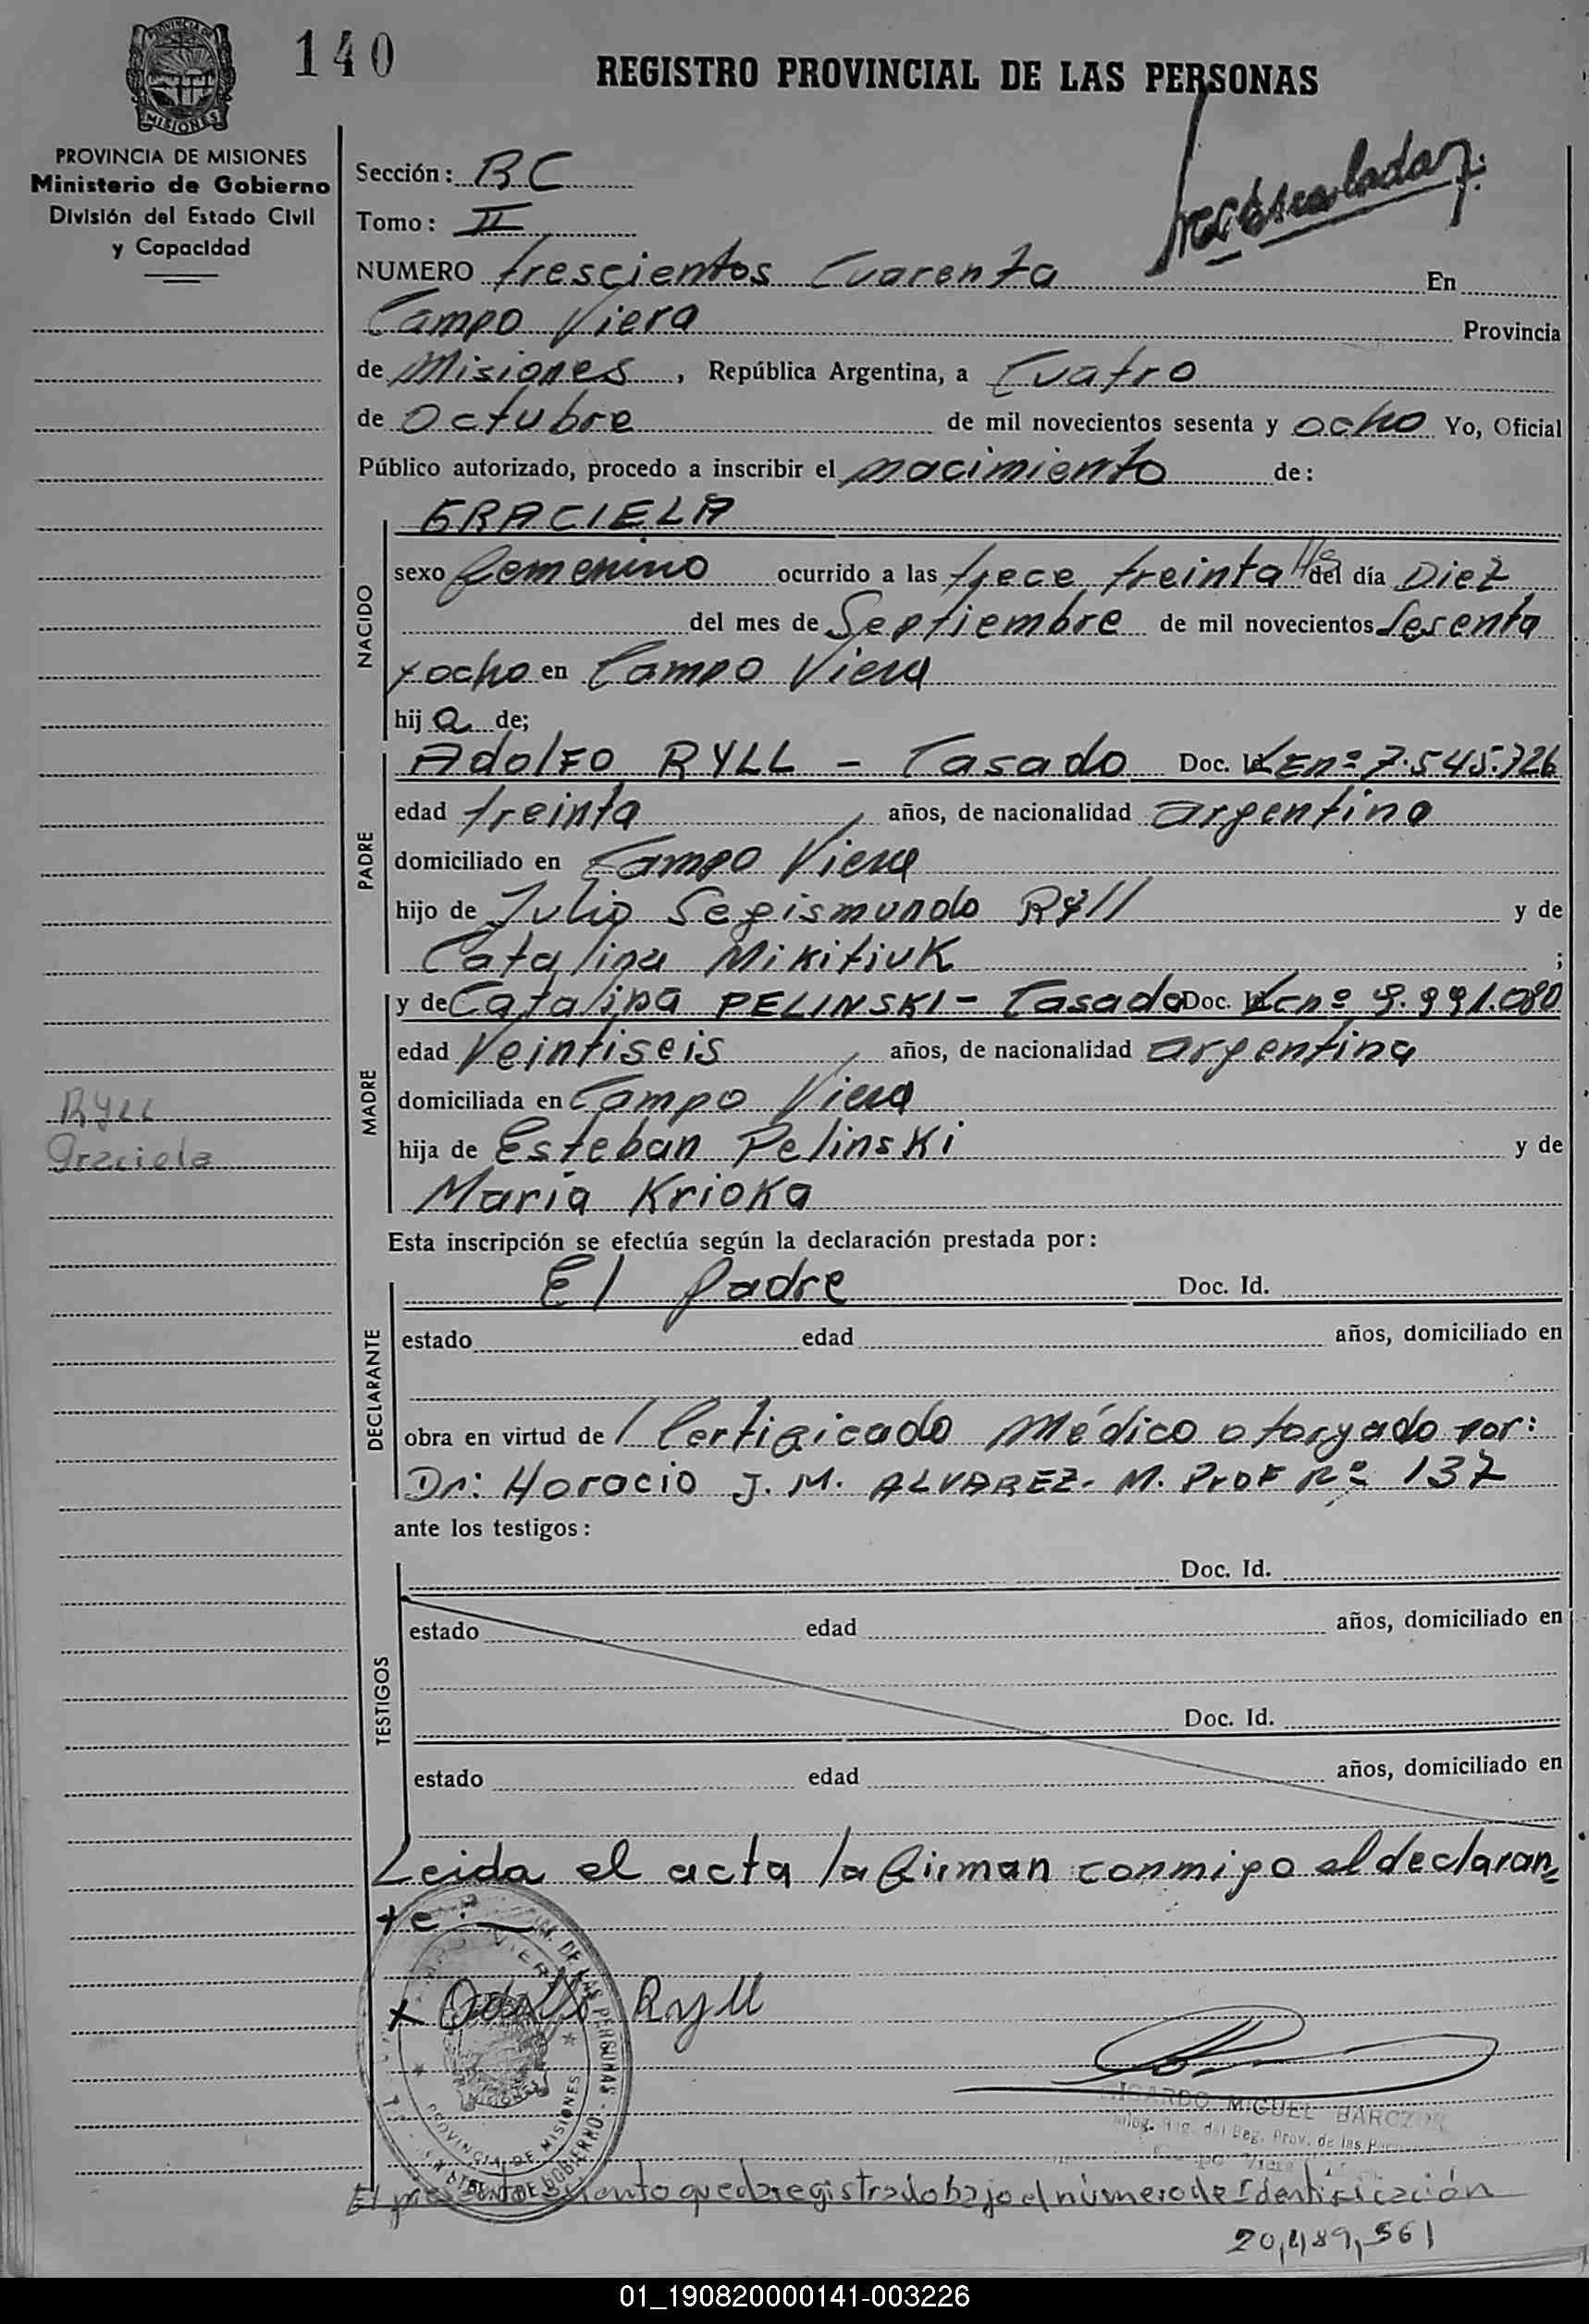 140
REGISTRO PROVINCIAL DE LAS PERSONAS
MISIONES
PROVINCIA DE MISIONES
Ministerio de Gobierno
División del Estado Civil
y Capacidad
Sección: BC
Tomo: II
NUMERO trescientos Cuarenta En
Campo Viera Provincia
de Misiones, República Argentina, a Cuatro
de Octubre de mil novecientos sesenta y ocho Yo, Oficial
Público autorizado, procedo a inscribir el nacimiento de:
NACIDO
GRACIELA
sexo femenino ocurrido a las trece treinta Hs del día Diez
del mes de Septiembre de mil novecientos Sesenta
y ocho en Campo Viera
hija de;
PADRE
Adolfo RYLL - Casado Doc. Id. LE nº 7.545.726
edad treinta años, de nacionalidad argentino
domiciliado en Campo Viera
hijo de Julio Segismundo Ryll y de
Catalina Mikitiuk ;
MADRE
y de Catalina PELINSKI - Casada Doc. Id. LC nº 9.991.080
edad Veintiseis años, de nacionalidad argentina
domiciliada en Campo Viera
hija de Esteban Pelinski y de
María Krioka
RYLL
Graciela
Esta inscripción se efectúa según la declaración prestada por:
DECLARANTE
El Padre Doc. Id.
estado edad años, domiciliado en
obra en virtud de 1 Certificado Médico otorgado por:
Dr: Horacio J. M. ALVAREZ. M. Prof Nº 137
ante los testigos:
TESTIGOS
Doc. Id.
estado edad años, domiciliado en
Doc. Id.
estado edad años, domiciliado en
Leida el acta la firman conmigo el declaran
te.-
x Adolfo Ryll
PROVINCIA DE MISIONES
RICARDO MIGUEL BARCZUK
del Reg. Prov. de las
El presente nacimiento queda registrado bajo el número de Identificación
20,489,561
01_190820000141-003226